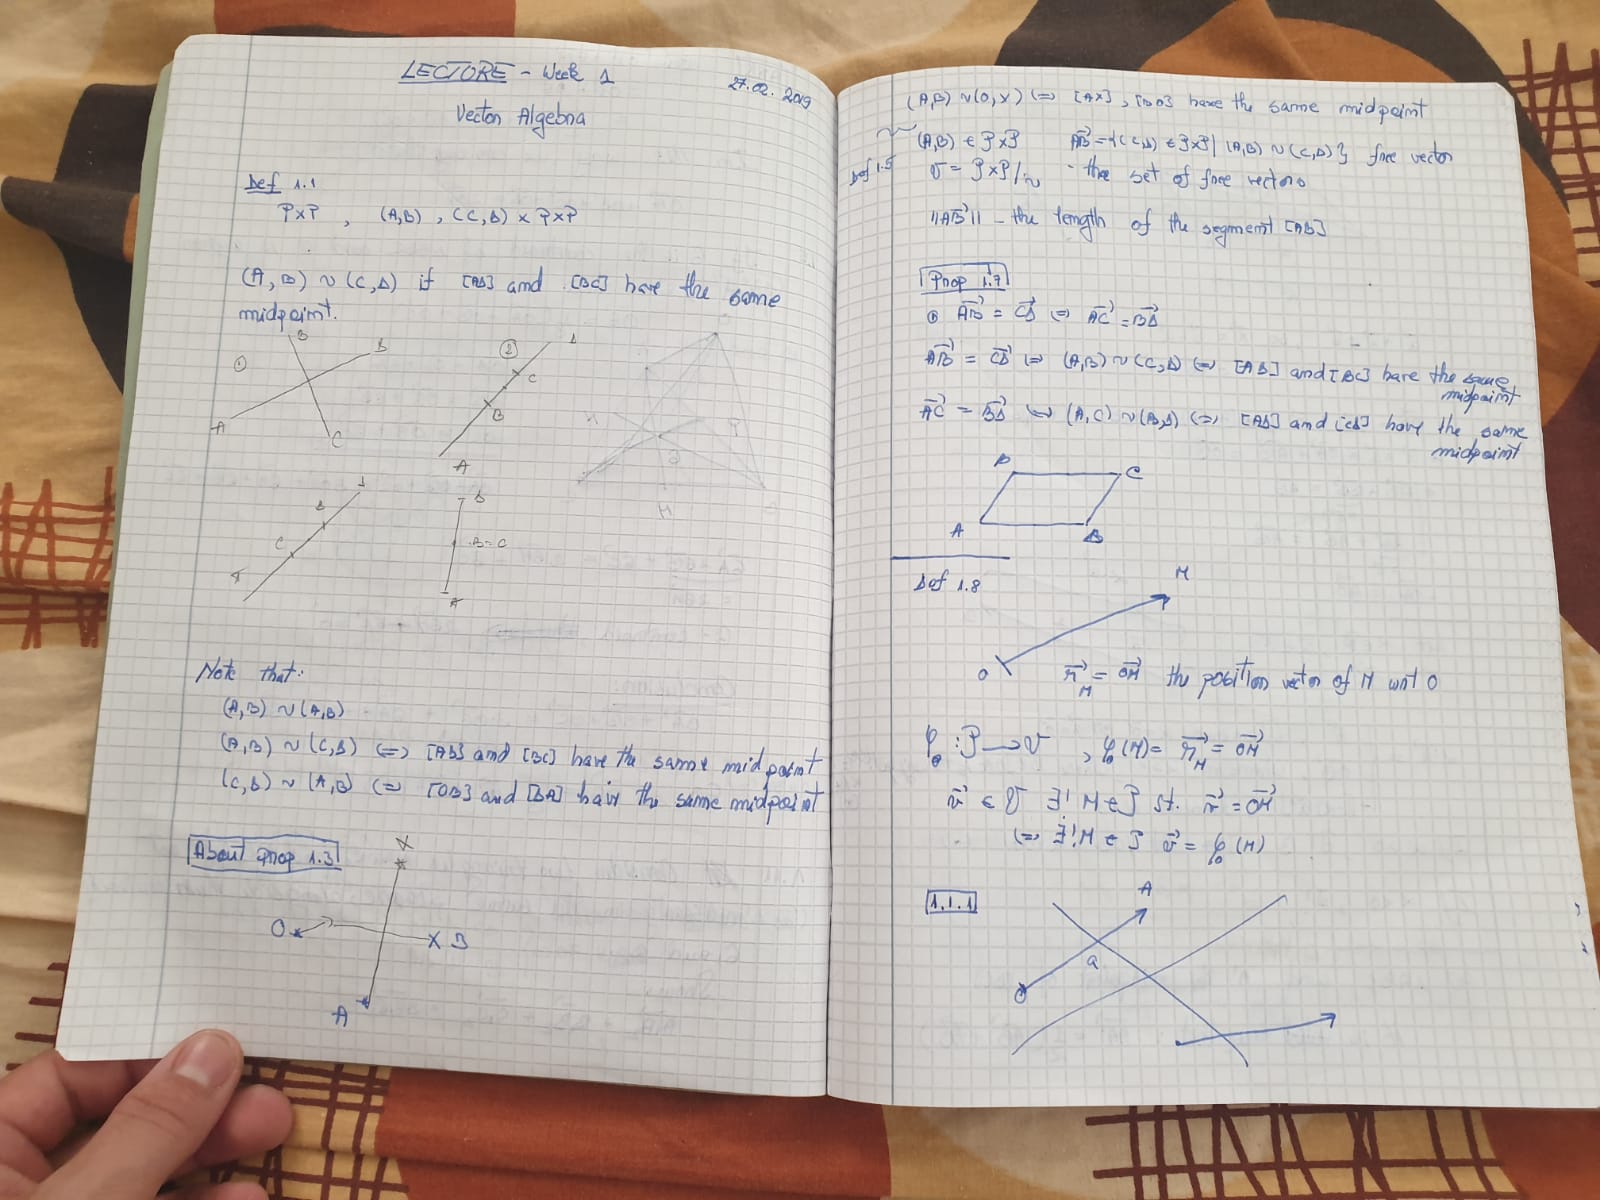 LECTURE - Week 1
27.02.2019
Vector Algebra
Def 1.1
P×P , (A,B) , (C,D) × P×P
(A,B) ~ (C,D) if [AD] and [BC] have the same
midpoint.
① B D
A C
② D
C
B
A
D
B
C
A
D
B=C
A
Note that:
(A,B) ~ (A,B)
(A,B) ~ (C,D) <=> [AD] and [BC] have the same midpoint
(C,D) ~ (A,B) <=> [CB] and [DA] have the same midpoint
About prop 1.3
X
O
B
A
(A,B) ~ (O,X) <=> [AX], [BO] have the same midpoint
(A,B) ∈ P×P AB = {(C,D) ∈ P×P | (A,B) ~ (C,D)} free vector
Def 1.5
V = P×P/~ - the set of free vectors
||AB|| - the length of the segment [AB]
Prop 1.7
① AB = CD <=> AC = BD
AB = CD <=> (A,B) ~ (C,D) <=> [AD] and [BC] have the same
midpoint
AC = BD <=> (A,C) ~ (B,D) <=> [AD] and [CB] have the same
midpoint
D C
A B
Def 1.8
M
O
r_M = OM the position vector of M wrt O
φ_O : P → V , φ(M) = r_M = OM
v ∈ V ∃! M ∈ P st. v = OM
<=> ∃! M ∈ P v = φ_O (M)
1.1.1
A
a
O